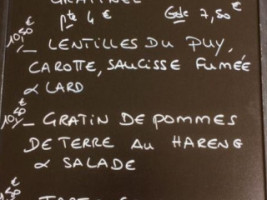 Pte 4 € Gde 7,50 €
10,50 € _ LENTILLES DU PUY,
CAROTTE, SAUCISSE FUMÉE
& LARD
10,50 € _ GRATIN DE POMMES
DE TERRE AU HARENG
& SALADE